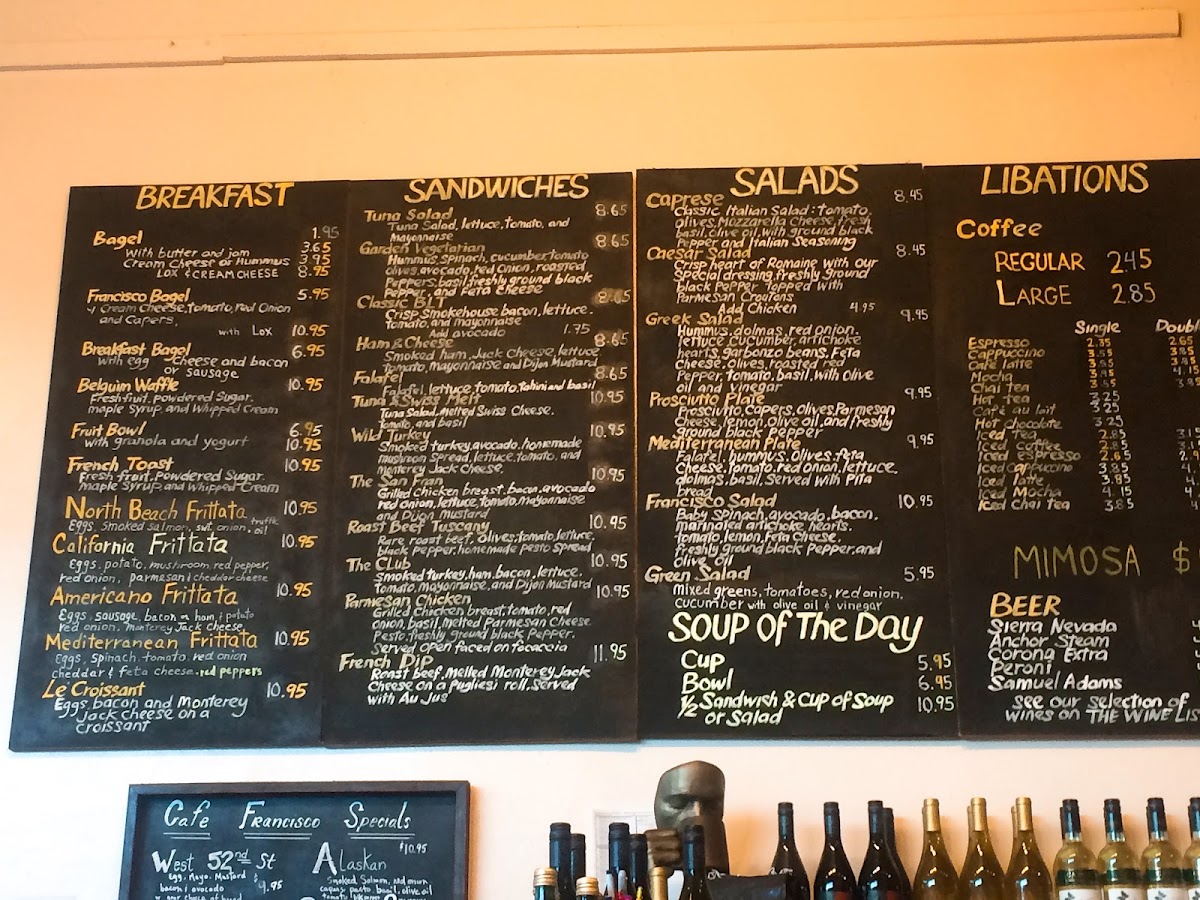 BREAKFAST
Bagel 1.95
with butter and jam 3.65
Cream Cheese or Hummus 3.95
LOX & CREAM CHEESE 8.95
Francisco Bagel 5.95
Cream Cheese, tomato, red Onion
and Capers.
with Lox 10.95
Breakfast Bagel 6.95
with egg - Cheese and bacon
or sausage
Belguim Waffle 10.95
Fresh fruit, Powdered Sugar.
maple Syrup and Whipped Cream
Fruit Bowl 6.95
with granola and yogurt 10.95
French Toast 10.95
Fresh fruit, Powdered Sugar.
maple Syrup and Whipped Cream
North Beach Frittata 10.95
Eggs, Smoked salmon, swt. onion, truffle oil
California Frittata 10.95
Eggs, potato, mushroom, red pepper,
red onion, parmesan & cheddar cheese
Americano Frittata 10.95
Eggs, sausage, bacon or ham, & potato
red onion, monterey Jack Cheese
Mediterranean Frittata 10.95
Eggs, spinach, tomato, red onion
cheddar & feta cheese, red peppers
Le Croissant 10.95
Eggs, bacon and Monterey
Jack Cheese on a
Croissant
SANDWICHES
Tuna Salad 8.65
Tuna Salad, lettuce, Tomato, and
Mayonnaise
Garden Vegetarian 8.65
Hummus, Spinach, cucumber, tomato
olives, avocado, red Onion, roasted
Peppers, basil, freshly ground black
Pepper and Feta Cheese
Classic BLT 8.65
Crisp Smokehouse bacon, lettuce.
tomato, and mayonnaise
Add avocado 1.75
Ham & Cheese 8.65
Smoked ham, Jack Cheese, lettuce
Tomato, mayonnaise and Dijon Mustard
Falafel 8.65
Falafel, lettuce, tomato, tahini and basil
Tuna & Swiss Melt 10.95
Tuna Salad, Melted Swiss Cheese.
Tomato, and basil
Wild Turkey 10.95
Smoked turkey, avocado, homemade
mushroom Spread, lettuce, tomato, and
monterey Jack Cheese.
The San Fran 10.95
Grilled Chicken breast, bacon, avocado
red onion, lettuce, tomato, mayonnaise
and Dijon mustard
Roast Beef Tuscany 10.95
Rare roast beef, olives, tomato, lettuce,
black pepper, homemade pesto Spread
The CLub 10.95
Smoked turkey, ham, bacon, lettuce.
Tomato, Mayonnaise, and Dijon Mustard
Parmesan Chicken 10.95
Grilled Chicken breast, tomato, red
onion, basil, melted Parmesan Cheese
Pesto, freshly ground black Pepper.
Served open faced on focaccia
French Dip 11.95
Roast beef, Melled Monterey Jack
Cheese on a Pugliesi roll, Served
with Au Jus
SALADS
Caprese 8.45
Classic Italian Salad: tomato
olives, Mozzarella Cheese, fresh
basil, olive oil, with ground black
Pepper and Italian Seasoning
Caesar Salad 8.45
Crisp heart of Romaine with our
Special dressing, freshly ground
black Pepper topped with
Parmesan Croutons
Add Chicken 4.95
Greek Salad 9.95
Hummus, dolmas, red onion.
lettuce, cucumber, artichoke
hearts, garbonzo beans, Feta
Cheese, olives, roasted red
Pepper, tomato, basil, with Olive
oil and vinegar
Prosciutto Plate 9.95
Prosciutto, capers, olives, Parmesan
Cheese, lemon, olive oil, and freshly
ground black Pepper
Mediterranean Plate 9.95
Falafel, hummus, Olives, feta
Cheese, tomato, red onion, lettuce.
dolmas, basil, Served with Pita
bread
Francisco Salad 10.95
Baby spinach, avocado, bacon.
marinated artichoke hearts.
tomato, lemon, Feta Cheese.
freshly ground black Pepper, and
olive oil
Green Salad 5.95
mixed greens, tomatoes, red onion,
cucumber with olive oil & vinegar
SOUP Of The Day
Cup 5.95
Bowl 6.95
1/2 Sandwish & Cup of Soup 10.95
or Salad
LIBATIONS
Coffee
REGULAR 2.45
LARGE 2.85
Single Doubl
Espresso 2.35 2.65
Cappuccino 3.85
Cafe latte
Mocha
Chai tea
Hot tea 3.25
Café au lait 3.25
Hot chocolate 3.25
Iced Tea 2.85
Iced coffee
Iced espresso 2.65
Iced Cappuccino 3.85
Iced latte 3.85
Iced Mocha 4.15
Iced Chai Tea 3.85
MIMOSA $
BEER
Sierra Nevada
Anchor Steam
Corona Extra
Peroni
Samuel Adams
See our selection of
wines on THE WINE LIS
Cafe Francisco Specials
West 52nd St
Egg, Mayo, Mustard
bacon & avocado $9.95
Alaskan $10.95
Smoked Salmon, red onion
capers, pesto, basil, olive oil